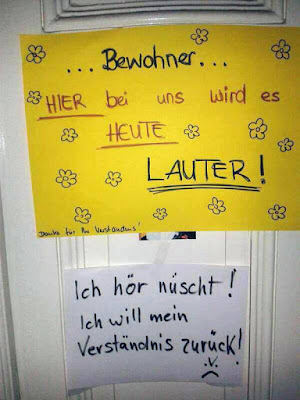 ...Bewohner...
HIER bei uns wird es
HEUTE
LAUTER!
Danke für Ihr Verständnis!
Ich hör nüscht!
Ich will mein
Verständnis zurück!